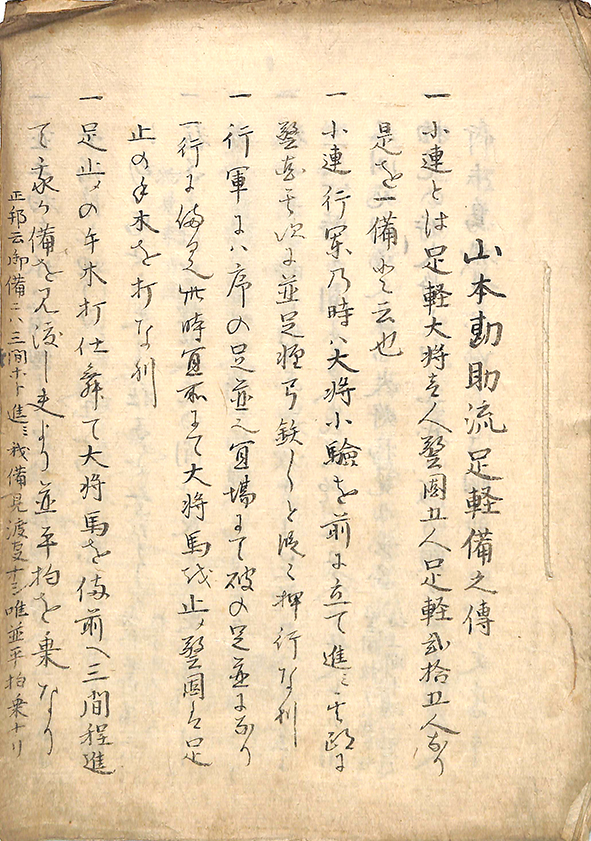 山本勘助流足軽備之傳
一 小連とは足軽大将壱人警固五人足軽弐拾五人なり
是を一備と云也
一 小連行軍乃時ハ大将小驗を前に立て進ミ其跡に
警固其次に並足軽弓鉄と段々押行なり
一 行軍にハ序の足並又冝場にて破の足並になり
行に備見此時冝所にて大将馬を止メ警固も足
止の手木を打なり
一 足止メの手木打仕舞て大将馬を備前へ三間程進
て我が備を見渡し夫より並平拍を乗なり
正郡云備ニハ三間ホト進ミ我備見渡ナシ唯並平拍乗ナリ